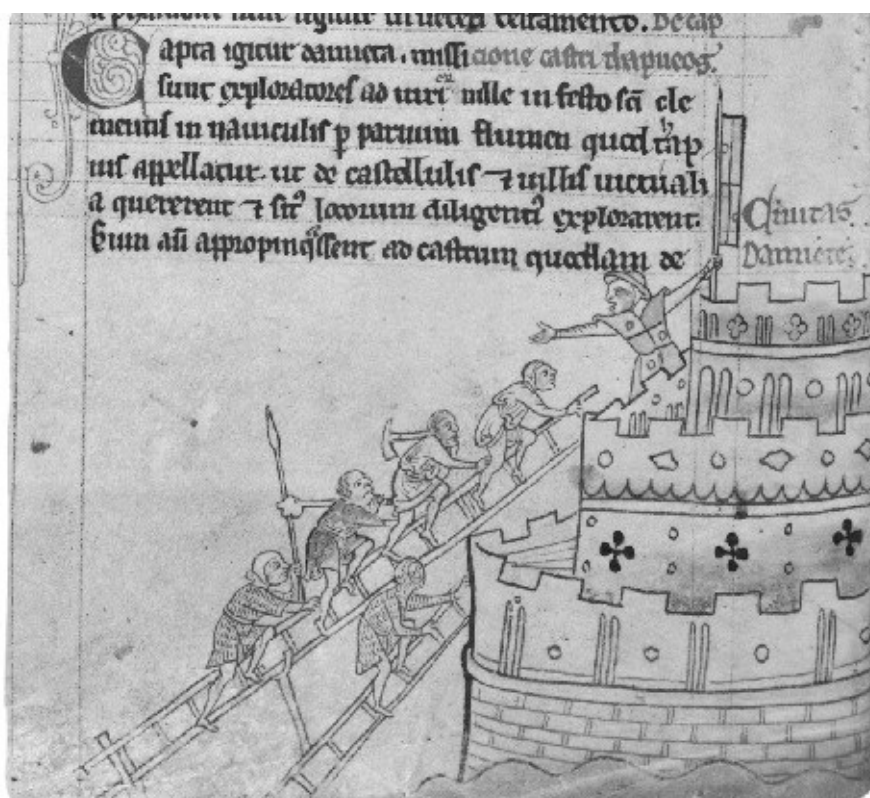 a pharaone sunt signate in ueteri testamento. De cap
Capta igitur damieta. missi cione castri thapneos.
sunt exploratores ad uiri mille in festo sci cle
mentis in nauiculis p paruum flumen quod tap
nis appellatur. ut de castellulis ⁊ uillis uictuali
a quererent ⁊ sit⁹ locorum diligenti⁹ explorarent.
Cum aū appropinq̃ssent ad castrum quoddam de
Ciuitas
Damiete.